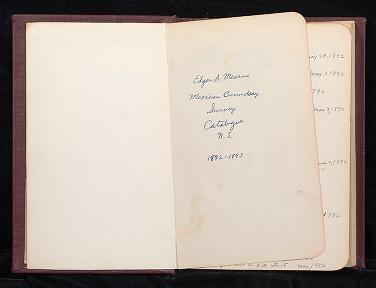 Edgar A. Mearns
Mexican Boundary
Survey
Catalogue
N. S.
1892-1893
May 3 1892
1892
May 3, 1892
1892
1892
May 1892